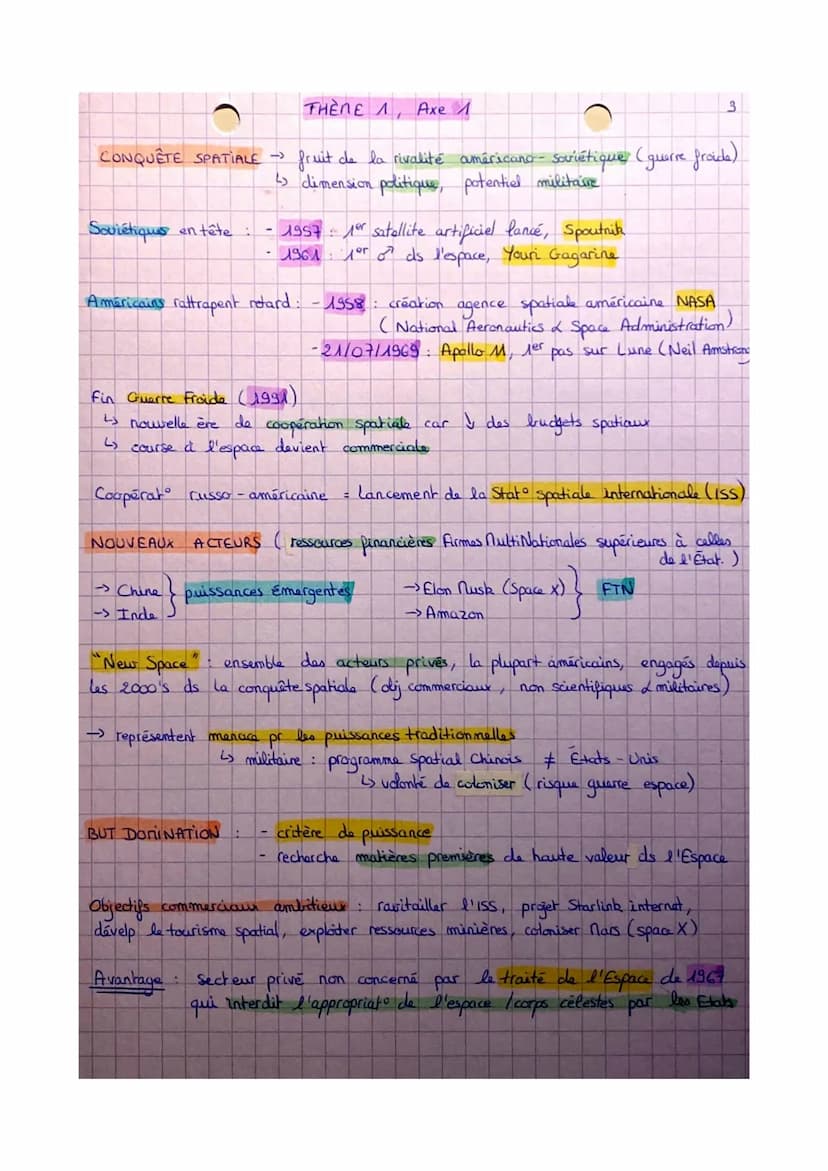 THÈME 1, Axe 1
3
CONQUÊTE SPATIALE → fruit de la rivalité américano-soviétique (guerre froide)
↳ dimension politique, potentiel militaire
Soviétiques en tête : - 1957 : 1er satellite artificiel lancé, Spoutnik
- 1961 : 1er ♂ ds l'espace, Youri Gagarine
Américains rattrapent retard : - 1958 : création agence spatiale américaine NASA
(National Aeronautics & Space Administration)
- 21/07/1969 : Apollo 11, 1er pas sur Lune (Neil Amstrong
Fin Guerre Froide (1991)
↳ nouvelle ère de coopération spatiale car ↓ des budgets spatiaux
↳ course à l'espace devient commerciale
Coopérat° russo-américaine = lancement de la Stat° spatiale internationale (ISS)
NOUVEAUX ACTEURS (ressources financières Firmes MultiNationales supérieures à celles
de l'État.)
→ Chine } puissances émergentes → Elon Musk (Space X) } FTN
→ Inde → Amazon
"New Space" : ensemble des acteurs privés, la plupart américains, engagés depuis
les 2000's ds la conquête spatiale (obj commerciaux, non scientifiques & militaires)
→ représentent menace pr les puissances traditionnelles
↳ militaire : programme spatial chinois ≠ États-Unis
↳ volonté de coloniser (risque guerre espace)
BUT DOMINATION : - critère de puissance
- recherche matières premières de haute valeur ds l'Espace
Objectifs commerciaux ambitieux : ravitailler l'ISS, projet Starlink internet,
dévelp le tourisme spatial, exploiter ressources minières, coloniser Mars (space X)
Avantage : secteur privé non concerné par le traité de l'Espace de 1967
qui interdit l'appropriat° de l'espace / corps célestes par les États